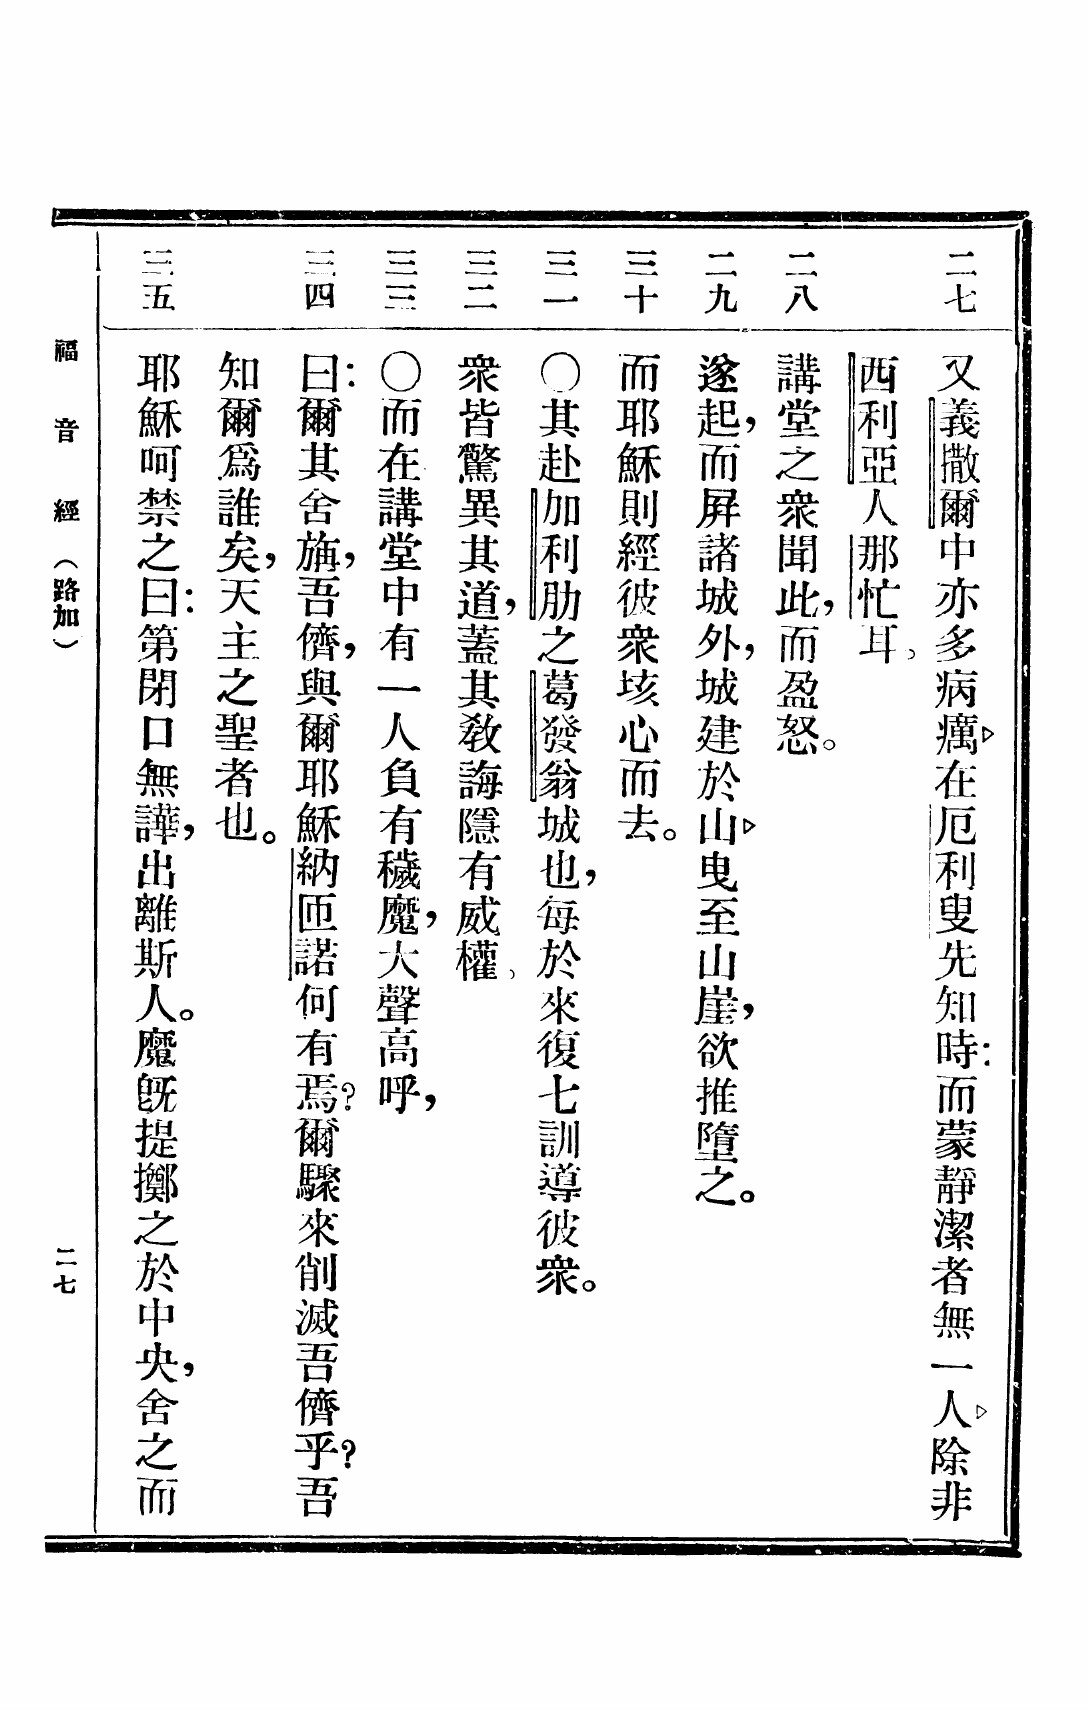 二七 又義撒爾中亦多病癘▷在厄利叟先知時：而蒙靜潔者無一人▷除非
西利亞人那忙耳。
二八 講堂之衆聞此，而盈怒。
二九 遂起，而屛諸城外，城建於山▷曳至山崖，欲推墮之。
三十 而耶穌則經彼衆垓心而去。
三一 〇其赴加利肋之葛發翁城也，每於來復七訓導彼衆。
三二 衆皆驚異其道，蓋其敎誨隱有威權。
三三 〇而在講堂中有一人負有穢魔，大聲高呼，
三四 曰：爾其舍旃，吾儕，與爾耶穌納匝諾何有焉？爾驟來削滅吾儕乎？吾
知爾爲誰矣，天主之聖者也。
三五 耶穌呵禁之曰：第閉口無譁，出離斯人。魔旣提擲之於中央，舍之而
福音經（路加） 二七